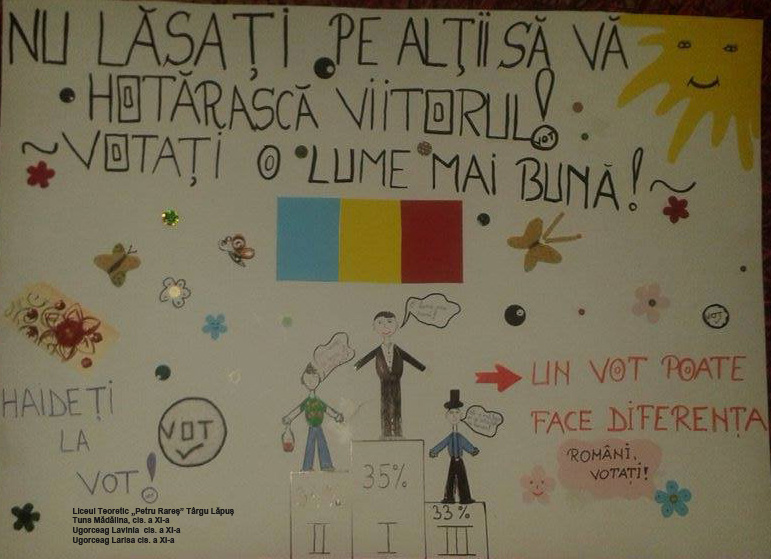 NU LĂSAȚI PE ALȚII SĂ VĂ
HOTĂRASCĂ VIITORUL!
VOT
~VOTAȚI O LUME MAI BUNĂ!~
VOT
UN VOT POATE
FACE DIFERENȚA
ROMÂNI,
VOTAȚI!
HAIDEȚI
LA
VOT!
VOT
35%
33%
II
I
III
Liceul Teoretic „Petru Rareș” Târgu Lăpuș
Tuns Mădălina, cls. a XI-a
Ugorceag Lavinia cls. a XI-a
Ugorceag Larisa cls. a XI-a